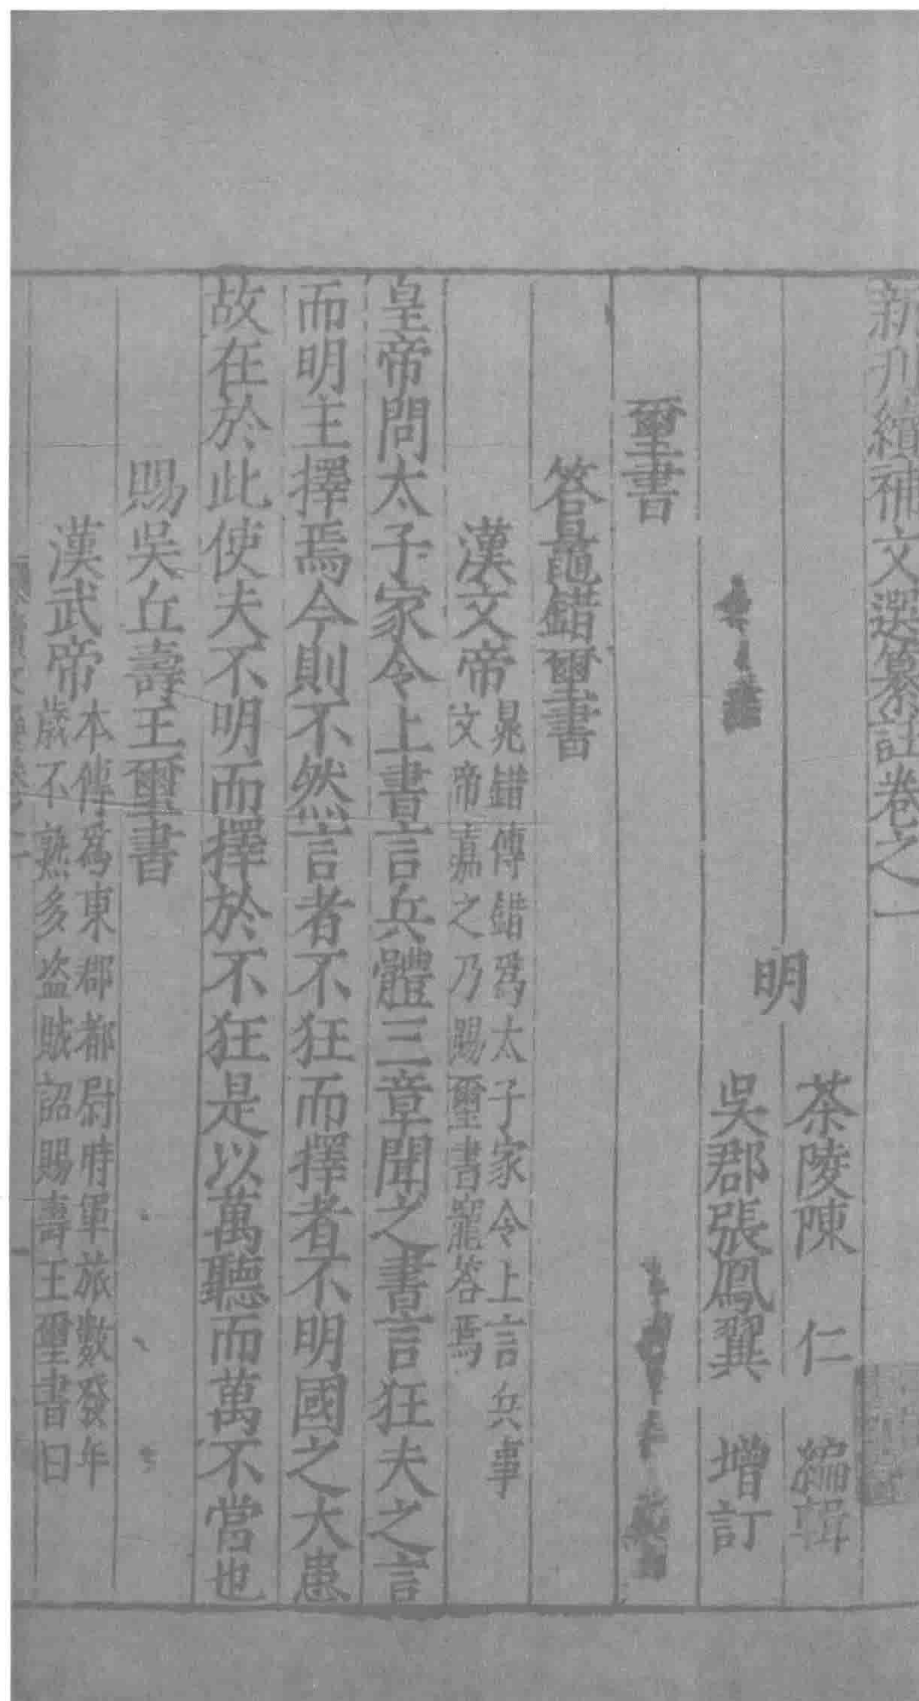 新刋續補文選纂註卷之一
明
茶陵陳仁編輯
吳郡張鳳翼增訂
璽書
答鼂錯璽書
漢文帝
晁錯傳錯爲太子家令上言兵事
文帝嘉之乃賜璽書寵答焉
皇帝問太子家令上書言兵體三章聞之書言狂夫之言
而明主擇焉今則不然言者不狂而擇者不明國之大患
故在於此使夫不明而擇於不狂是以萬聽而萬不當也
賜吳丘壽王璽書
漢武帝
本傳爲東郡都尉時軍旅數發年
歲不熟多盗賊詔賜壽王璽書曰